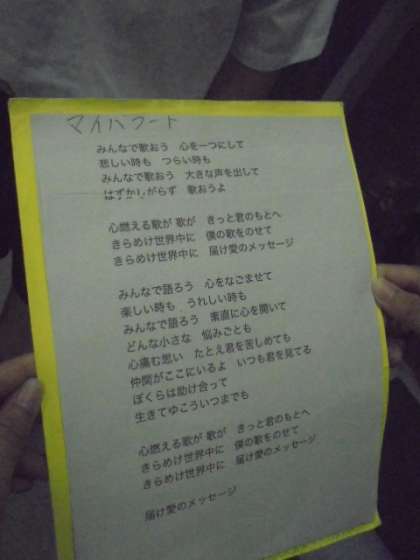 マイバラード
みんなで歌おう 心を一つにして
悲しい時も つらい時も
みんなで歌おう 大きな声を出して
はずかしがらず 歌おうよ
心燃える歌が 歌が きっと君のもとへ
きらめけ世界中に 僕の歌をのせて
きらめけ世界中に 届け愛のメッセージ
みんなで語ろう 心をなごませて
楽しい時も うれしい時も
みんなで語ろう 素直に心を開いて
どんな小さな 悩みごとも
心痛む思い たとえ君を苦しめても
仲間がここにいるよ いつも君を見てる
ぼくらは助け合って
生きてゆこういつまでも
心燃える歌が 歌が きっと君のもとへ
きらめけ世界中に 僕の歌をのせて
きらめけ世界中に 届け愛のメッセージ
届け愛のメッセージ